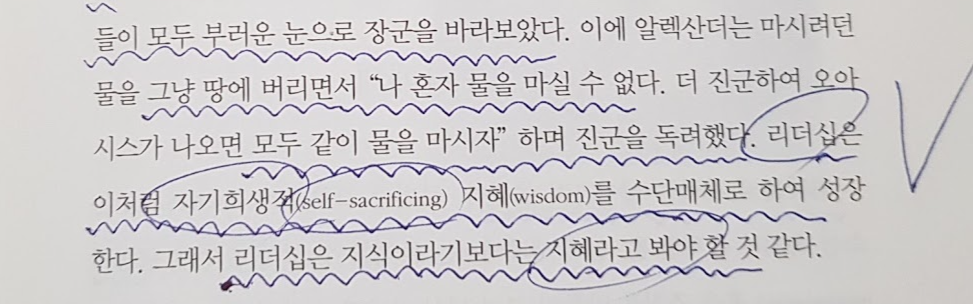 들이 모두 부러운 눈으로 장군을 바라보았다. 이에 알렉산더는 마시려던
물을 그냥 땅에 버리면서 “나 혼자 물을 마실 수 없다. 더 진군하여 오아
시스가 나오면 모두 같이 물을 마시자” 하며 진군을 독려했다. 리더십은
이처럼 자기희생적(self-sacrificing) 지혜(wisdom)를 수단매체로 하여 성장
한다. 그래서 리더십은 지식이라기보다는 지혜라고 봐야 할 것 같다.